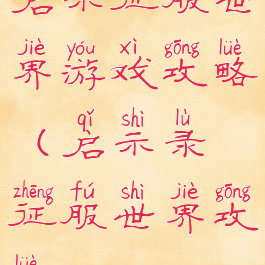 启示录征服世
jiè yóu xì gōng lüè
界游戏攻略
qǐ shì lù
（启示录
zhēng fú shì jiè gōng
征服世界攻
lüè